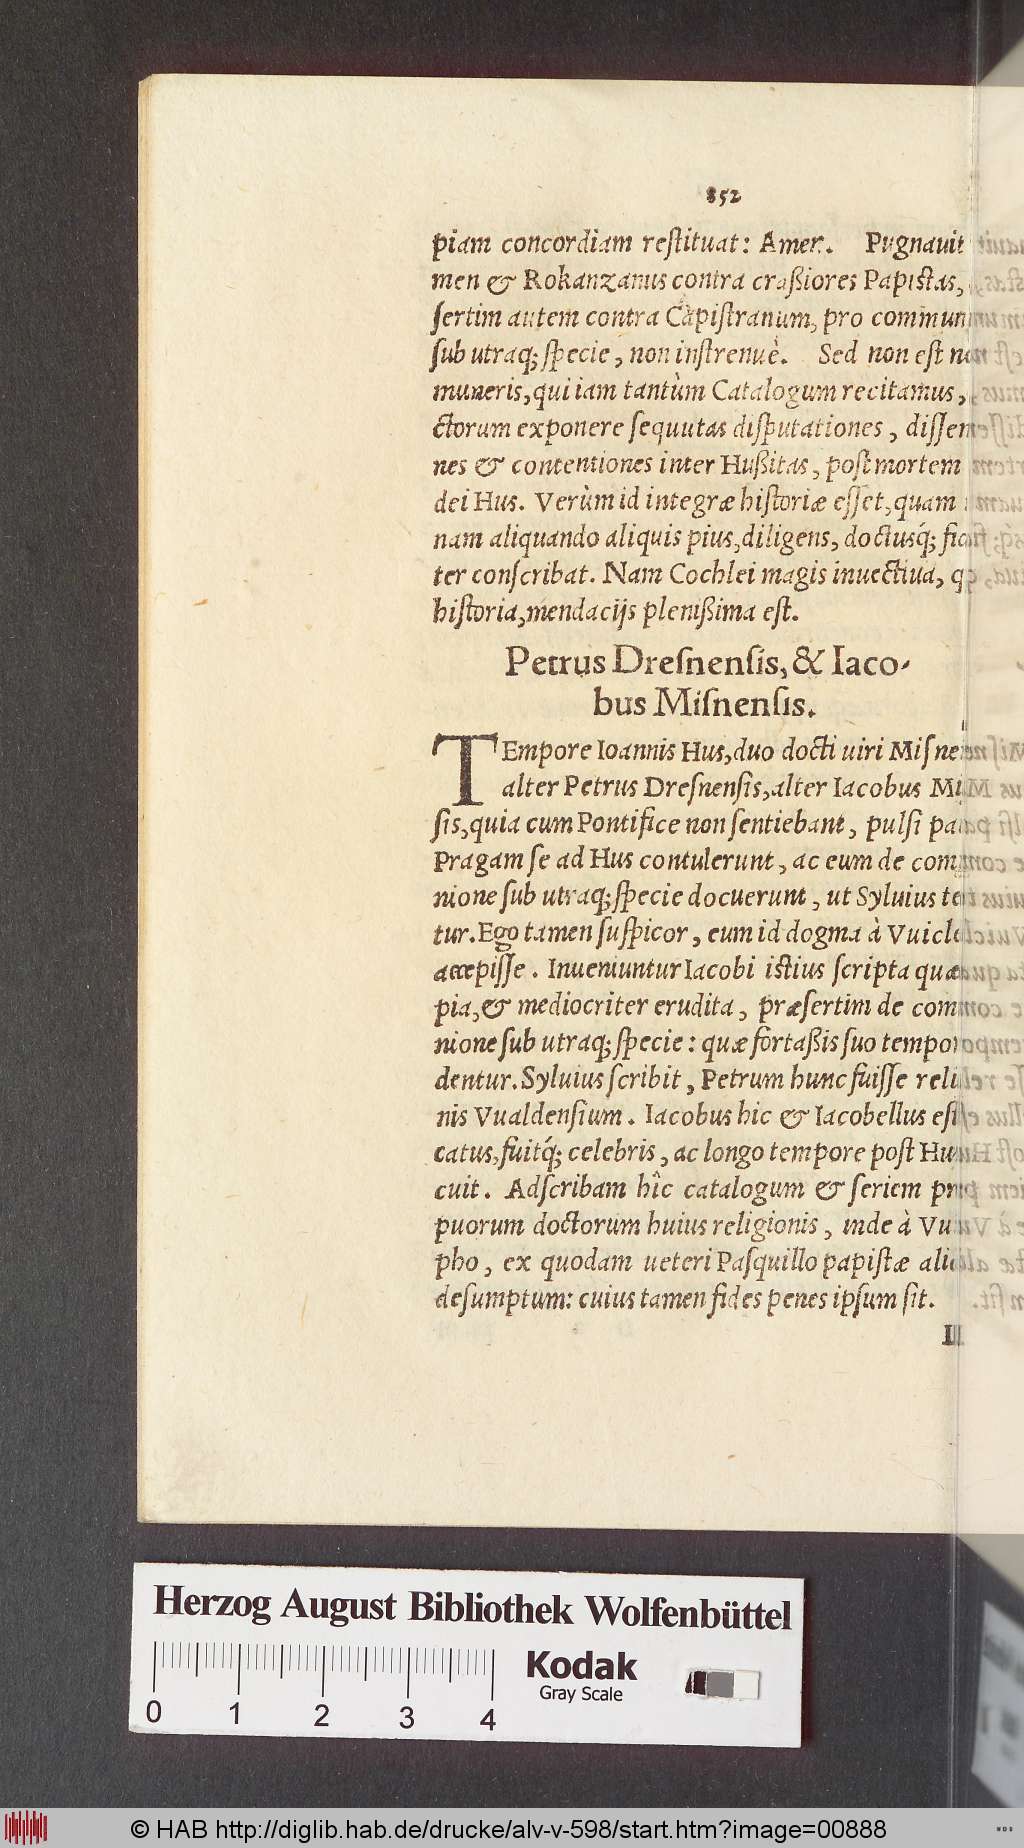 852
piam concordiam reſtituat: Amen. Pugnauit
men & Rokanzanus contra craßiores Papiſtas,
ſertim autem contra Capiſtranum, pro commun
ſub utraq; ſpecie, non inſtrenuè. Sed non eſt
muneris, qui iam tantùm Catalogum recitamus,
ctorum exponere ſequutas diſputationes, diſſen
nes & contentiones inter Hußitas, poſt mortem
dei Hus. Verùm id integræ hiſtoriæ eſſet, quam
nam aliquando aliquis pius, diligens, doctusq́;
ter conſcribat. Nam Cochlei magis inuectiua,
hiſtoria, mendacijs plenißima eſt.
Petrus Dreſnenſis, & Iaco-
bus Miſnenſis.
TEmpore Ioannis Hus, duo docti uiri Miſne
alter Petrus Dreſnenſis, alter Iacobus Mi
ſis, quia cum Pontifice non ſentiebant, pulſi
Pragam ſe ad Hus contulerunt, ac eum de com
nione ſub utraq; ſpecie docuerunt, ut Syluius
tur. Ego tamen ſuſpicor, eum id dogma à Vuicl
accepiſſe. Inueniuntur Iacobi iſtius ſcripta
pia, & mediocriter erudita, præſertim de com
nione ſub utraq; ſpecie: quæ fortaßis ſuo tempo
dentur. Syluius ſcribit, Petrum hunc fuiſſe reli
nis Vualdenſium. Iacobus hic & Iacobellus
catus, fuitq́; celebris, ac longo tempore poſt Hu
cuit. Adſcribam hîc catalogum & ſeriem
puorum doctorum huius religionis, inde à Vu
pho, ex quodam ueteri Paſquillo papiſtæ ali
deſumptum: cuius tamen fides penes ipſum ſit.
Herzog August Bibliothek Wolfenbüttel
Kodak
Gray Scale
0 1 2 3 4
© HAB http://diglib.hab.de/drucke/alv-v-598/start.htm?image=00888